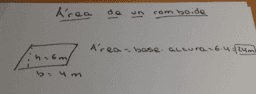 Área de un romboide
h = 6m
Área = base · altura = 6·4 = 24m
b = 4 m